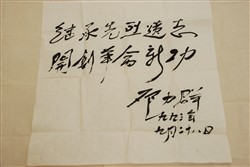 继承先烈遗志
開創革命新功
邓力群
九八年
九月二十八日